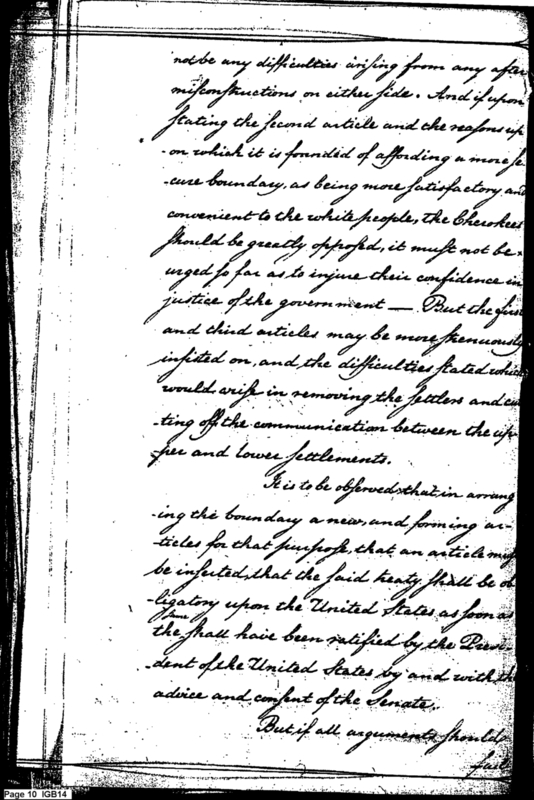 not be any difficulties arising from any after
misconstructions on either side. And if upon
stating the second article and the reasons up
-on which it is founded of affording a more se
-cure boundary, as being more satisfactory and
convenient to the white people, the Cherokees
should be greatly opposed, it must not be
urged so far as to injure their confidence in
justice of the government — But the first
and third articles may be more strenuously
insisted on, and the difficulties stated which
would arise in removing the settlers and cut
-ting off the communication between the up-
-per and lower settlements.
It is to be observed, that in arrang
-ing the boundary a new, and forming ar-
-ticles for that purpose, that an article must
be inserted, that the said treaty shall be ob
-ligatory upon the United States as soon as
same
the shall have been ratified by the Presi-
-dent of the United States by and with the
advice and consent of the Senate.
But if all arguments should
fail
Page 10 IGB14